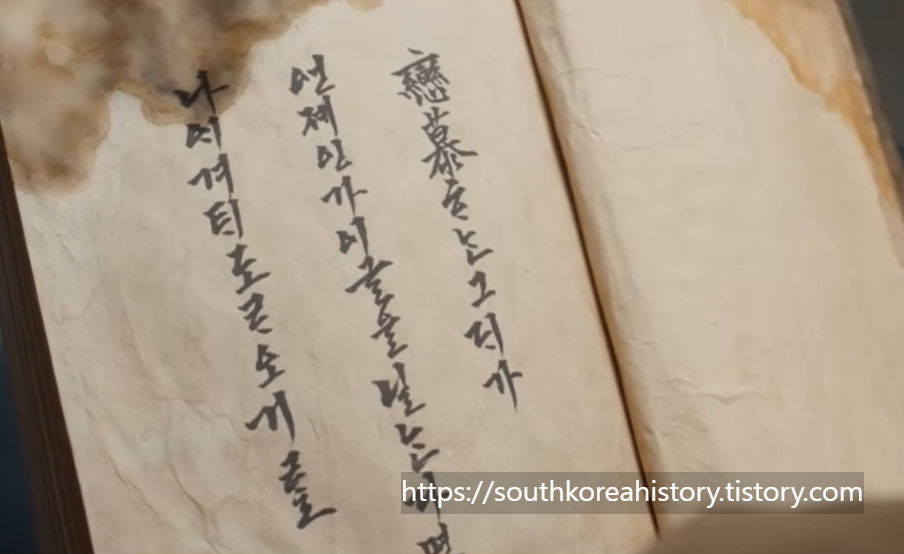 戀慕ᄒᆞ는그ᄃᆡ가
언제인가이글을닐는
나ᄋᆡ겨ᄐᆡ도ᄅᆞ오기ᄅᆞᆯ
https://southkoreahistory.tistory.com